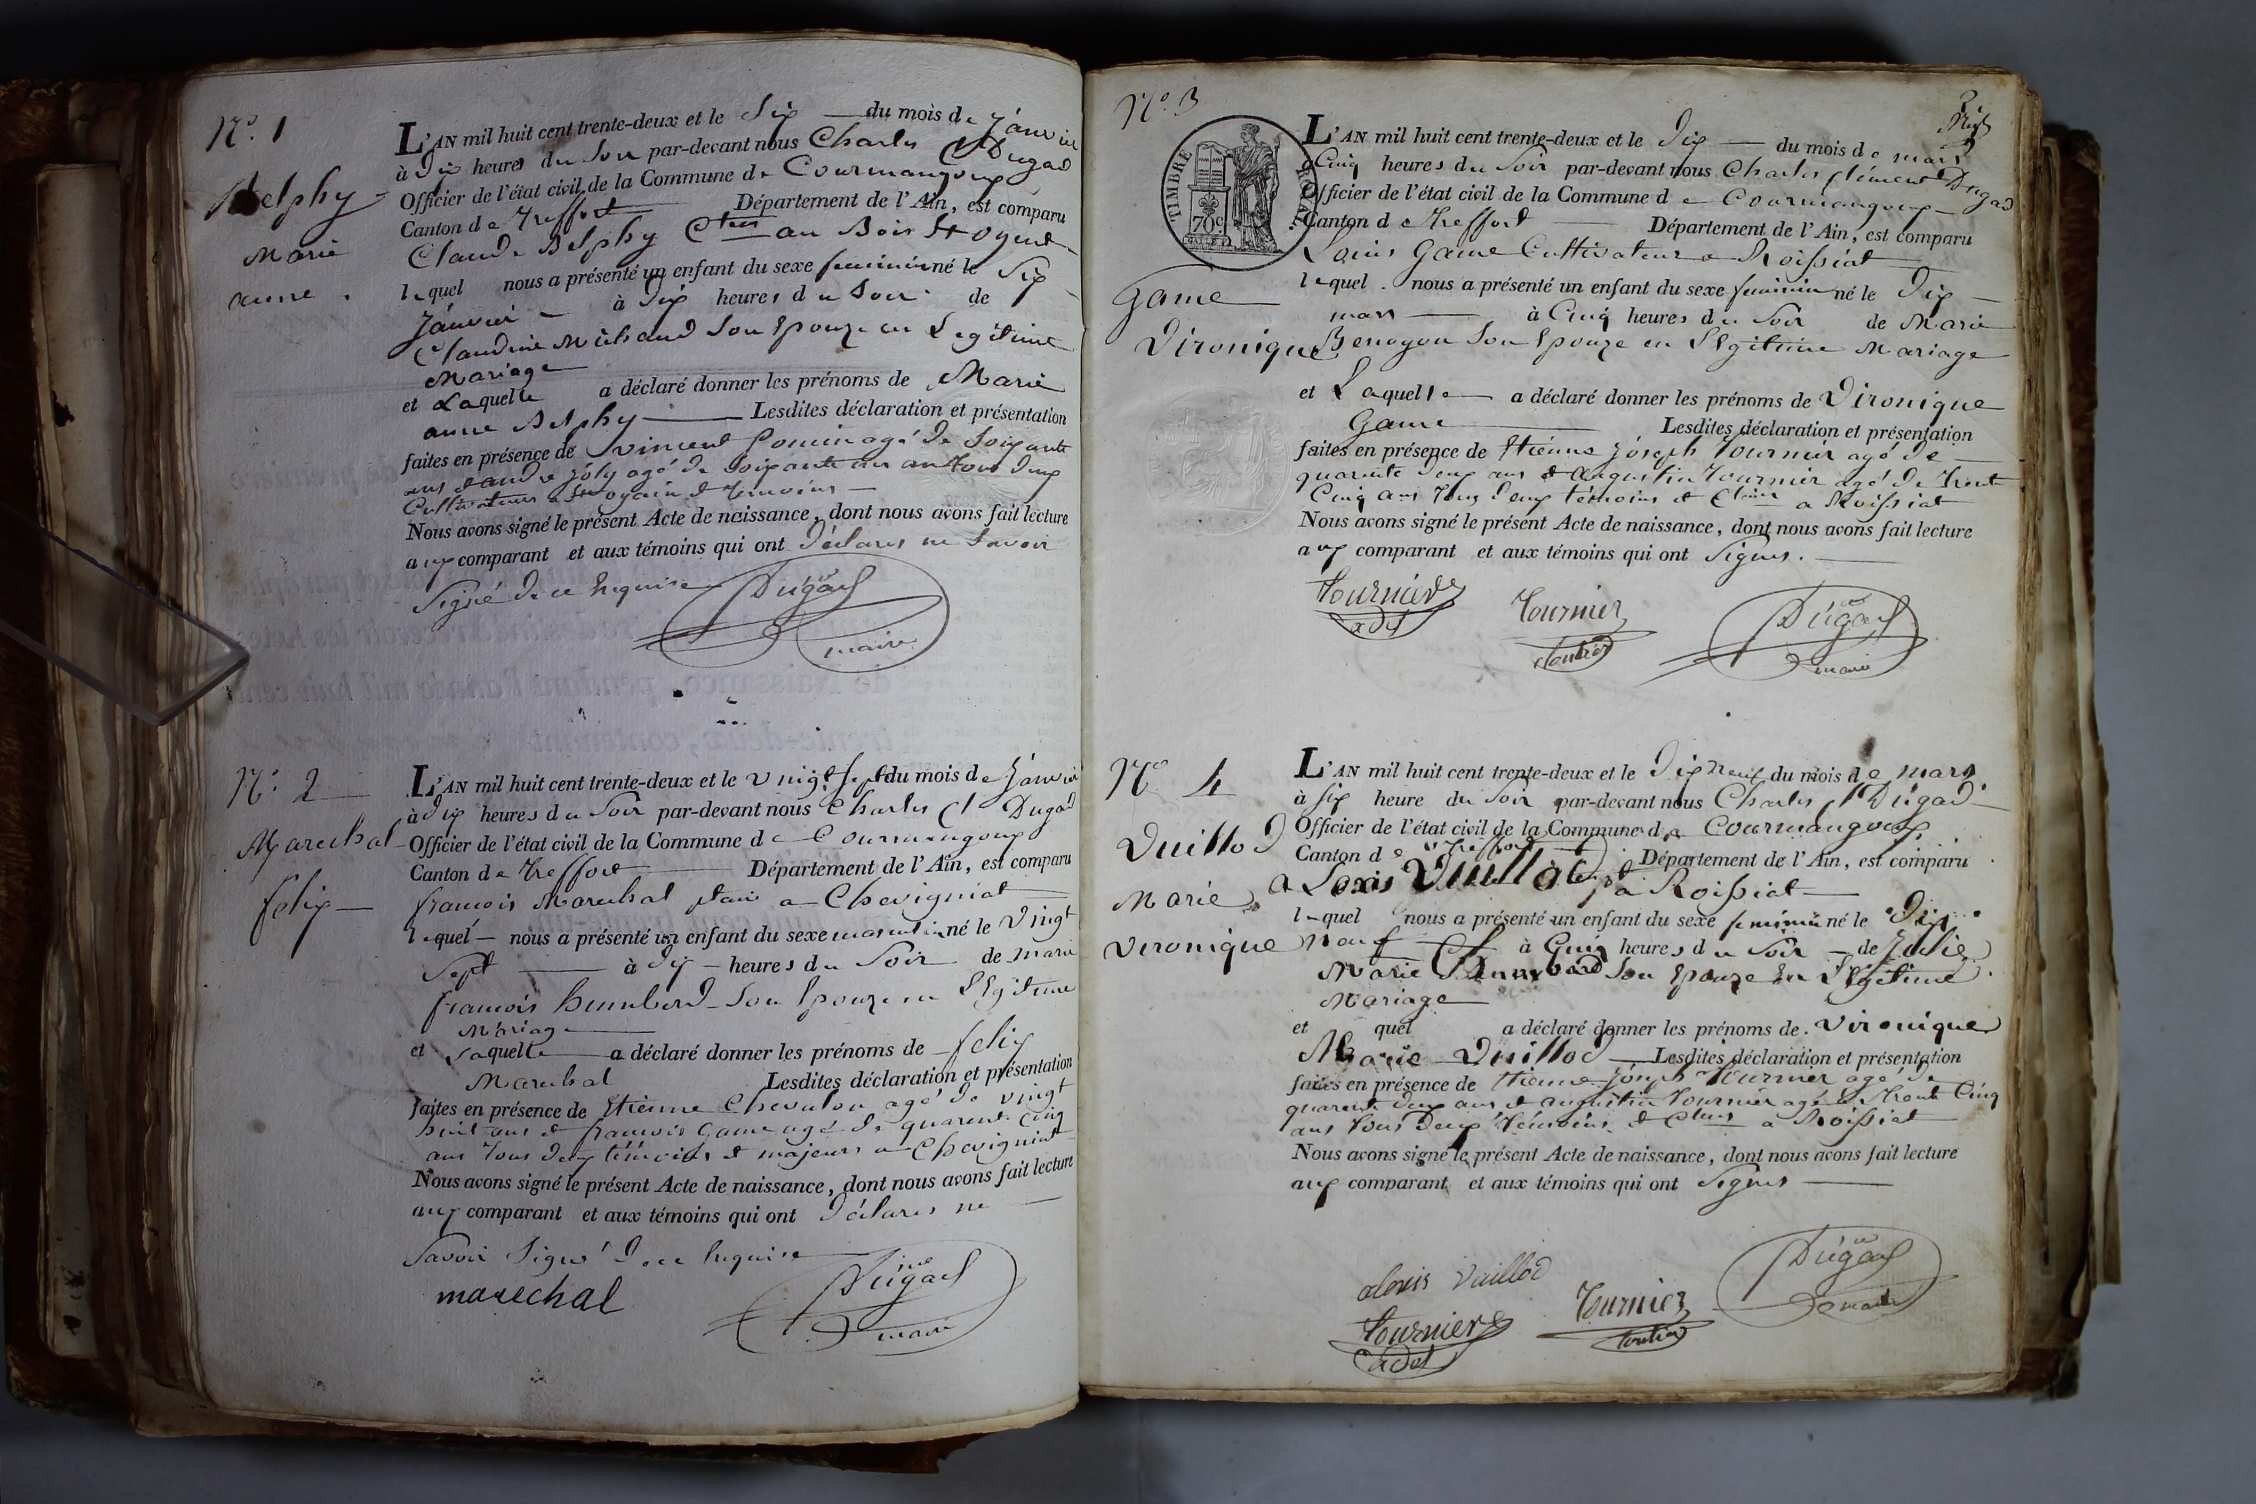 N.º 1
Delphy
Marie
anne .
L'AN mil huit cent trente-deux et le Six — du mois de Janvier
à dix heures du Soir par-devant nous Charles Ct Dugad
Officier de l'état civil de la Commune de Courmangoux
Canton de Treffort Département de l'Ain, est comparu
Claude Delphy Cteur au Bois St oyent
lequel nous a présenté un enfant du sexe feminin né le Six
Janvier — à dix heures du Soir de
Claudine Michaud Son Epouze en Legitime
Mariage
et Laquelle a déclaré donner les prénoms de Marie
anne Delphy — Lesdites déclaration et présentation
faites en présence de vincent agé de Soixante
ans et andré Joly agé de Soixante un an tous deux
Cultivateurs a St oyain et temoins —
Nous avons signé le présent Acte de naissance, dont nous avons fait lecture
aux comparant et aux témoins qui ont Déclarés ne Savoir
Signé de ce Enquise
Dugad
maire
N.º 2
Marechal
felix —
L'AN mil huit cent trente-deux et le vingt Sept du mois de Janvier
à dix heures du Soir par-devant nous Charles Ct Dugad
Officier de l'état civil de la Commune de Courmangoux
Canton de Treffort — Département de l'Ain, est comparu
francois Marechal a Chevigniat
lequel — nous a présenté un enfant du sexe masculin né le Vingt
Sept — à dix — heures du Soir de marie
francois humberd Son Epouze en LEgitime
Mariage
et Laquelle — a déclaré donner les prénoms de felix
Marechal Lesdites déclaration et présentation
faites en présence de Etienne Chevalon agé de vingt
huit ans et francois Game agé de quarente Cinq
ans tous deux témoins et majeurs a Chevigniat
Nous avons signé le présent Acte de naissance, dont nous avons fait lecture
aux comparant et aux témoins qui ont Déclarés ne —
Savoir Signé de ce Enquise
marechal
Dugad
maire
N.º 3
TIMBRE ROYAL.
70c
Game
Vironique
L'AN mil huit cent trente-deux et le Dix — du mois de mars
a Cinq heures du Soir par-devant nous Charles Clément Dugad
Officier de l'état civil de la Commune de Courmangoux
Canton de Treffort — Département de l'Ain, est comparu
Louis Game Cultivateur a Roissiat
lequel . nous a présenté un enfant du sexe feminin né le Dix —
mars — à Cinq heures du Soir de Marie
Benoyon Son Epouze en LEgitime Mariage
et Laquelle — a déclaré donner les prénoms de Vironique
Game — Lesdites déclaration et présentation
faites en présence de Etienne Jóseph Tournier agé de —
quarente deux ans et augustin Tournier agé de Trent
Cinq ans tous deux témoins et Cteurs a Roissiat
Nous avons signé le présent Acte de naissance, dont nous avons fait lecture
aux comparant et aux témoins qui ont Signés. —
Tournier
adet
Tournier
Dugad
maire
N.º 4
Vuillod
Marie
vironique
L'AN mil huit cent trente-deux et le Dix neuf du mois de mars
à six heure du Soir par-devant nous Charles Ct Dugad —
Officier de l'état civil de la Commune de Courmangoux
Canton de Treffort Département de l'Ain, est comparu
a Lexis Vuillod a Roissiat —
lequel nous a présenté un enfant du sexe feminin né le Dix
neuf — à Cinq heures du Soir — de Julie
Marie Son Epouze En LEgitime
Mariage
et quel a déclaré donner les prénoms de . Vironique
Marie Vuillod — Lesdites déclaration et présentation
faites en présence de Etienne Jóseph Tournier agé de
quarente deux ans et augustin tournier agé de Trente Cinq
ans tous Deux témoins et Cteurs a Roissiat
Nous avons signé le présent Acte de naissance, dont nous avons fait lecture
aux comparant et aux témoins qui ont Signés —
alexis Vuillod
Tournier
adet
Tournier
Dugad
maire